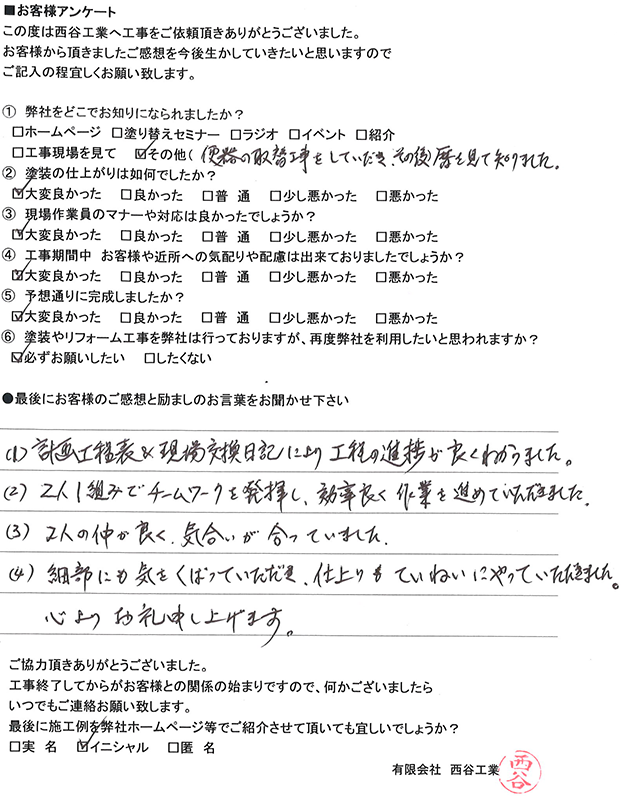 ■お客様アンケート
この度は西谷工業へ工事をご依頼頂きありがとうございました。
お客様から頂きましたご感想を今後生かしていきたいと思いますので
ご記入の程宜しくお願い致します。
① 弊社をどこでお知りになられましたか?
□ホームページ □塗り替えセミナー □ラジオ □イベント □紹介
□工事現場を見て ☑その他( 便器の取替工事をしていただき、その後暦を見て知りました。
② 塗装の仕上がりは如何でしたか?
☑大変良かった □良かった □普 通 □少し悪かった □悪かった
③ 現場作業員のマナーや対応は良かったでしょうか?
☑大変良かった □良かった □普 通 □少し悪かった □悪かった
④ 工事期間中 お客様や近所への気配りや配慮は出来ておりましたでしょうか?
☑大変良かった □良かった □普 通 □少し悪かった □悪かった
⑤ 予想通りに完成しましたか?
☑大変良かった □良かった □普 通 □少し悪かった □悪かった
⑥ 塗装やリフォーム工事を弊社は行っておりますが、再度弊社を利用したいと思われますか?
☑必ずお願いしたい □したくない
●最後にお客様のご感想と励ましのお言葉をお聞かせ下さい
(1) 計画工程表&現場交換日記により工程の進捗が良くわかりました。
(2) 2人1組みでチームワークを発揮し、効率良く作業を進めていただきました。
(3) 2人の仲が良く、気合いが合っていました。
(4) 細部にも気をくばっていただき、仕上りもていねいにやっていただきました。
心よりお礼申し上げます。
ご協力頂きありがとうございました。
工事終了してからがお客様との関係の始まりですので、何かございましたら
いつでもご連絡お願い致します。
最後に施工例を弊社ホームページ等でご紹介させて頂いても宜しいでしょうか?
□実 名 ☑イニシャル □匿 名
有限会社 西谷工業 西谷